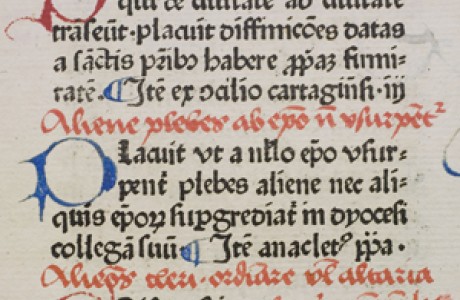 qui de ciuitate ad ciuitatē
trāſeūt·placuit diffinicōes datas
a ſāctis pr̄ibꝰ habere ꝓp̄aꝫ firmi-
tatē. ¶ Itē ex ↄcilio cartagiñſi·iij
Aliene plebes ab ep̄o n̄ vſurpēt̄
Placuit vt a nullo ep̄o vſur-
pent̄ plebes aliene nec ali-
quis ep̄oꝝ ſuꝑgrediat̄ in dyoceſi
collegā ſuū ¶ Itē anacletꝰ pp̄a·
Alieꝰ cleri·ordīare vl̄ altaria